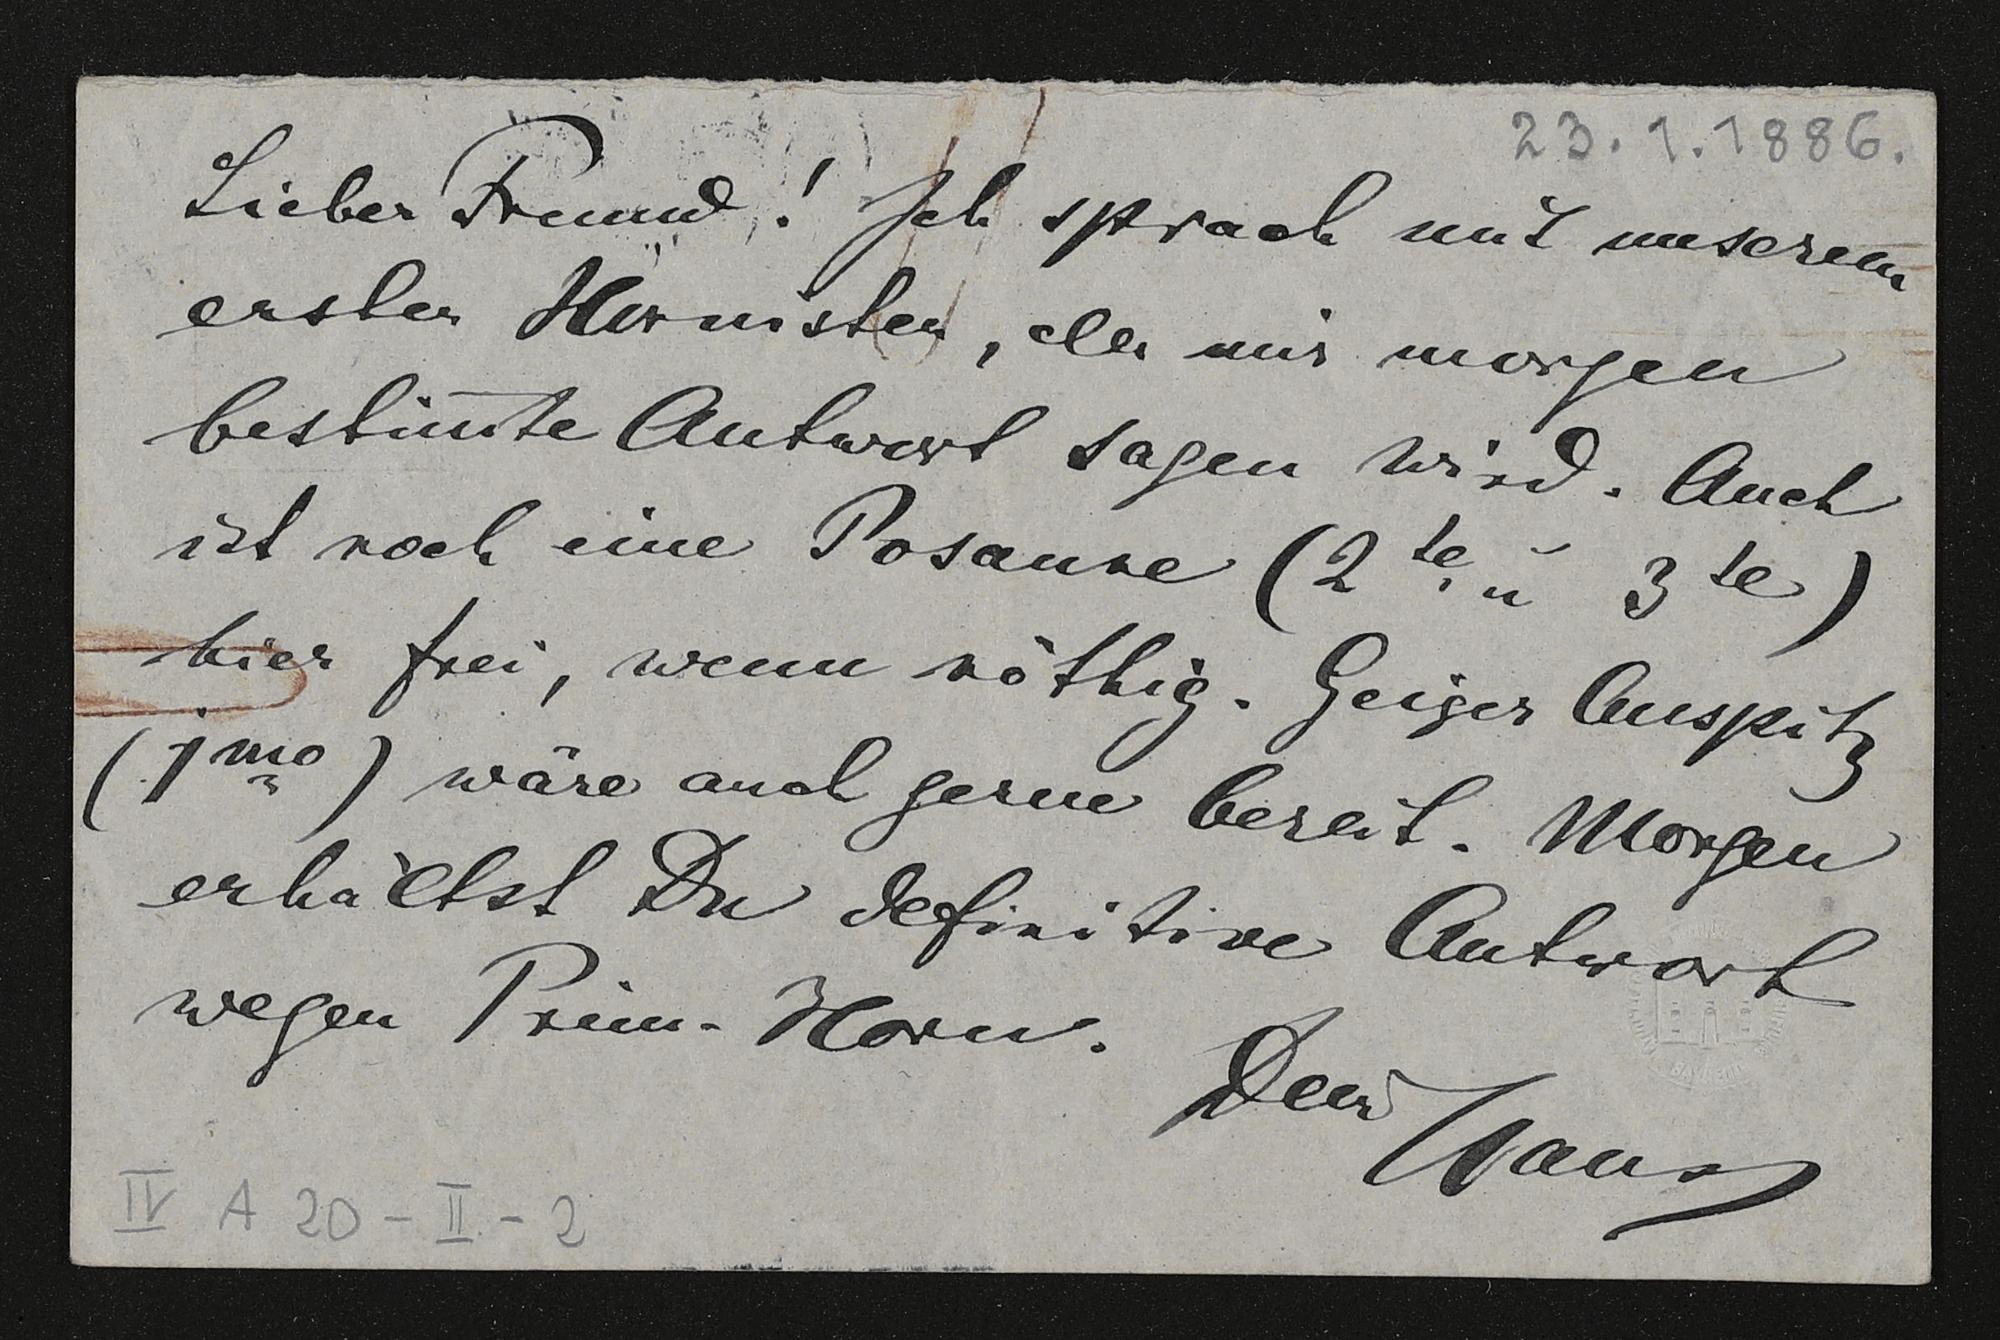 23.1.1886.
Lieber Freund! Ich sprach mit unserem
ersten Hornisten, der mir morgen
bestim̅te Antwort sagen wird. Auch
ist noch eine Posaune (2te u 3te)
hier frei, wenn nöthig. Geiger Auspitz
(1mo) wäre auch gerne bereit. Morgen
erhältst Du definitive Antwort
wegen Prim-Horn.
Dein Hans
IV A 20-II-2